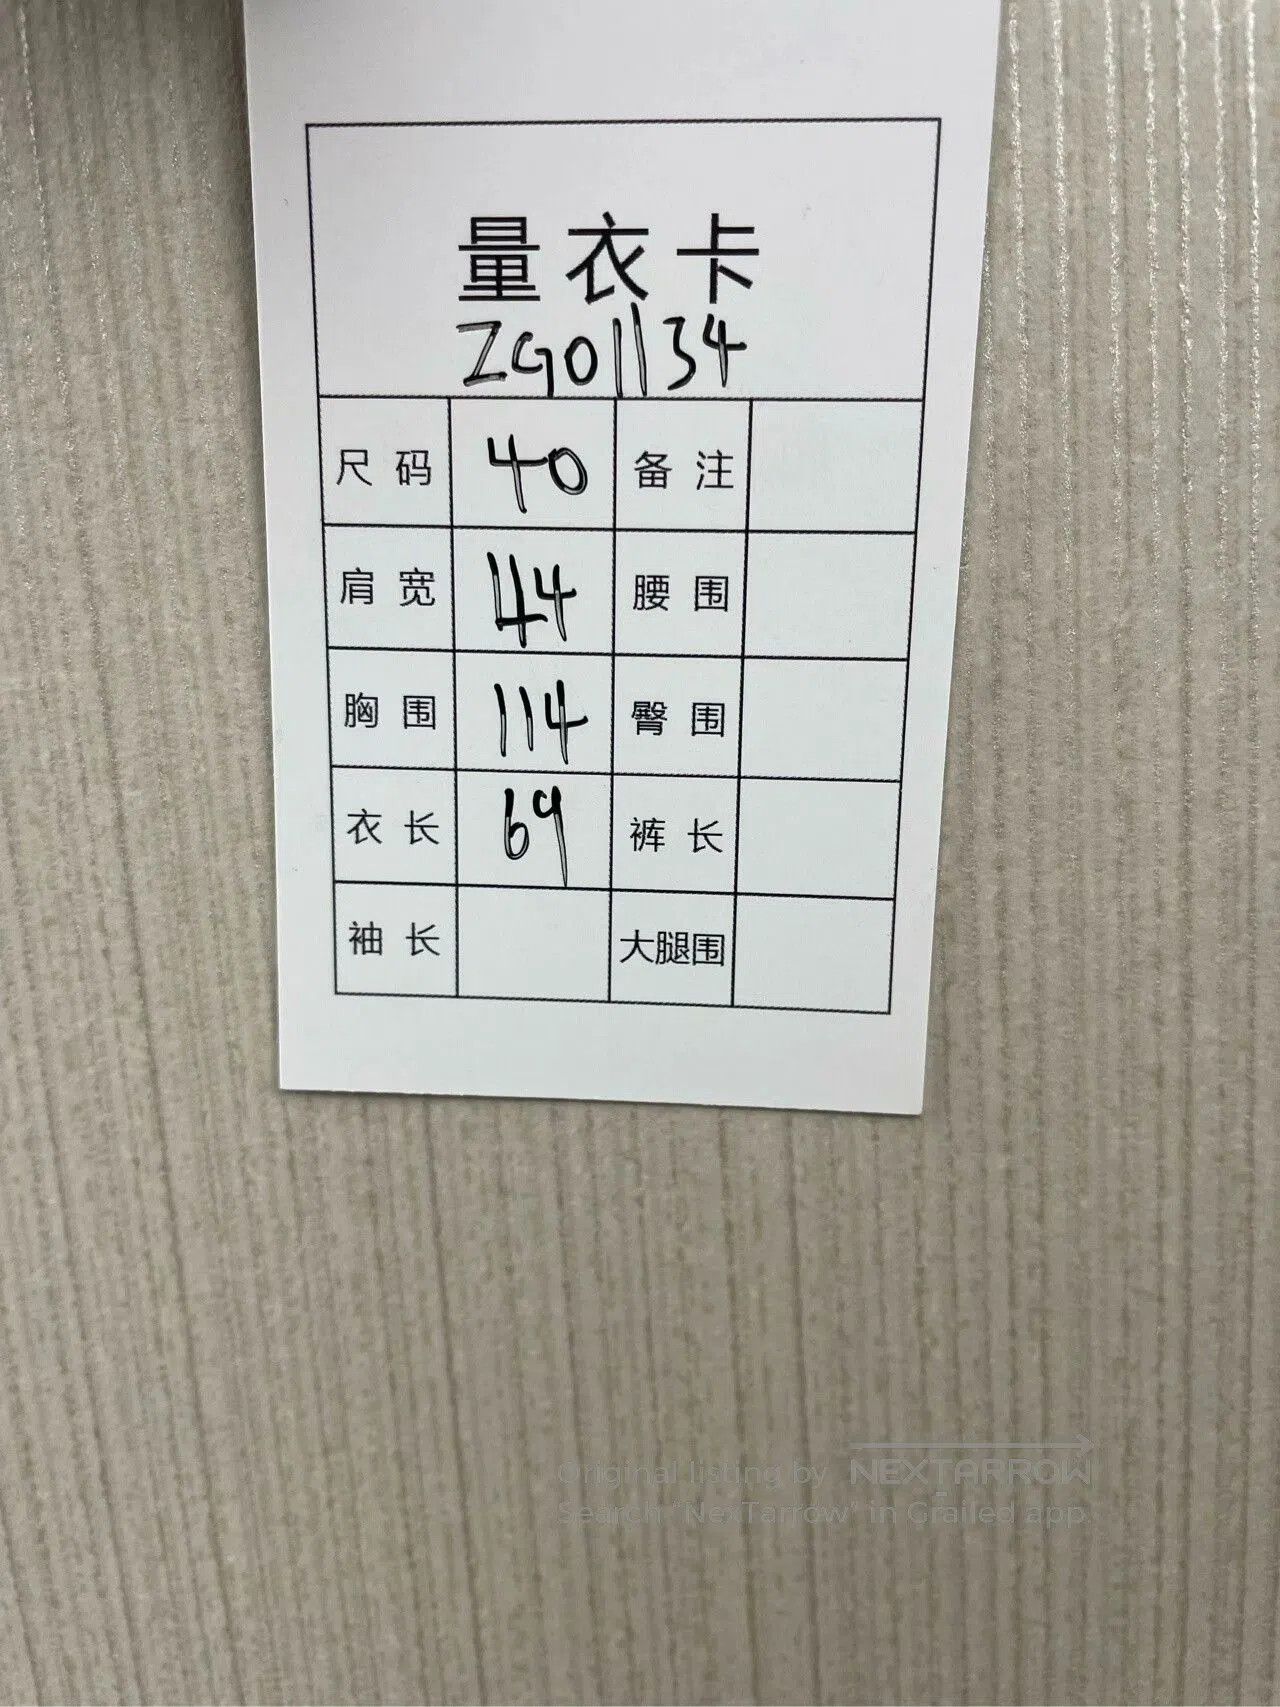 量衣卡
ZG01134
尺码 40 备注
肩宽 44 腰围
胸围 114 臀围
衣长 69 裤长
袖长 大腿围
Original listing by NEXTARROW
Search "NexTarrow" in Grailed app